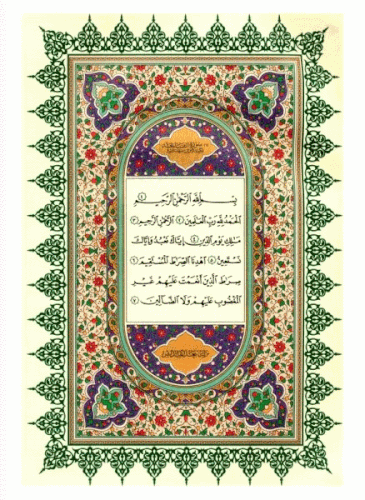 بِسْمِ اللَّهِ الرَّحْمَٰنِ الرَّحِيمِ ١
الْحَمْدُ لِلَّهِ رَبِّ الْعَالَمِينَ ٢ الرَّحْمَٰنِ الرَّحِيمِ ٣
مَالِكِ يَوْمِ الدِّينِ ٤ إِيَّاكَ نَعْبُدُ وَإِيَّاكَ
نَسْتَعِينُ ٥ اهْدِنَا الصِّرَاطَ الْمُسْتَقِيمَ ٦
صِرَاطَ الَّذِينَ أَنْعَمْتَ عَلَيْهِمْ غَيْرِ
الْمَغْضُوبِ عَلَيْهِمْ وَلَا الضَّالِّينَ ٧